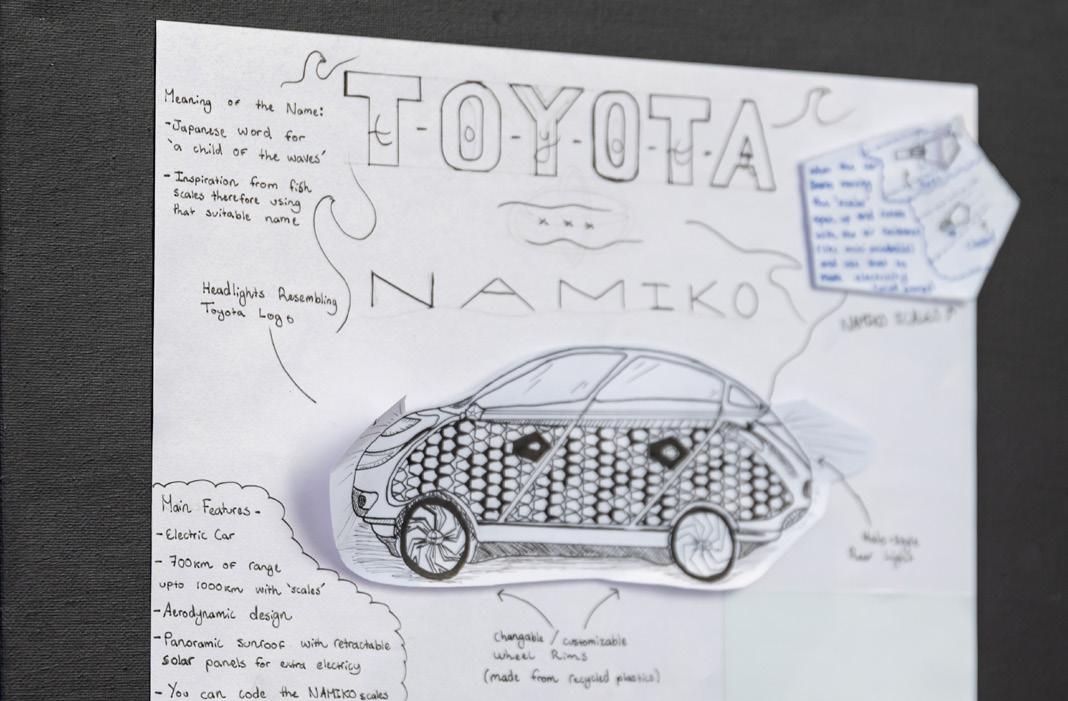 T-O-Y-O-T-A
Meaning of the Name:
-Japanese word for
'a child of the waves'
-Inspiration from fish
scales therefore using
that suitable name
x x x
NAMIKO
Headlights Resembling
Toyota Logo
open up and
with the air
and use that to
electricity
NAMIKO SCALES
Main Features-
-Electric Car
-700km of range
upto 1000km with 'scales'
-Aerodynamic design
-Panoramic sunroof with retractable
solar panels for extra electricy
-You can code the NAMIKO scales
Halo-style
Rear Light
Changable / customizable
Wheel Rims
(made from recycled plastics)